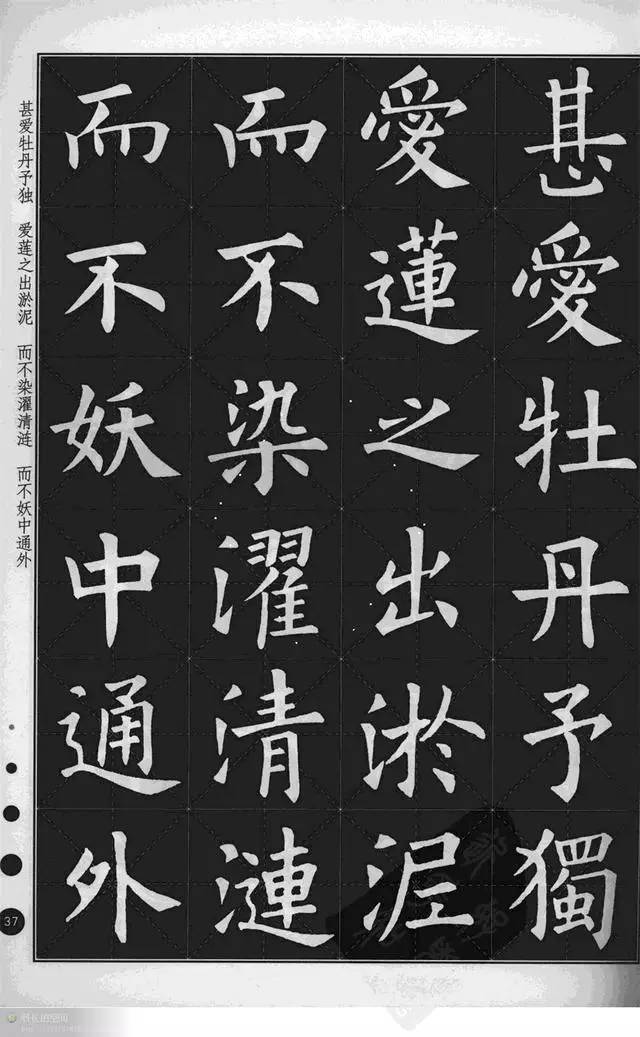 甚愛牡丹予獨
愛蓮之出淤泥
而不染濯清漣
而不妖中通外
甚爱牡丹予独 爱莲之出淤泥 而不染濯清涟 而不妖中通外
37